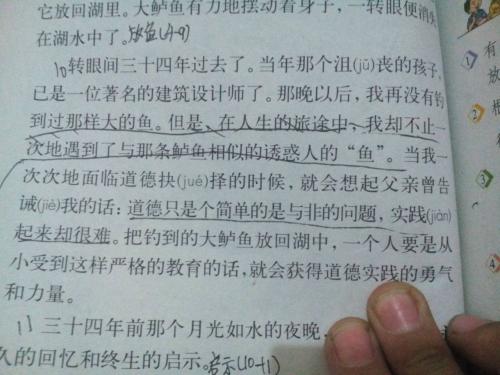 它放回湖里。大鲈鱼有力地摆动着身子，一转眼便消失
在湖水中了。放鱼(4-9)
10转眼间三十四年过去了。当年那个沮(jǔ)丧的孩子，
已是一位著名的建筑设计师了。那晚以后，我再没有钓
到过那样大的鱼。但是，在人生的旅途中，我却不止一
次地遇到了与那条鲈鱼相似的诱惑人的“鱼”。当我一
次次地面临道德抉(jué)择的时候，就会想起父亲曾告
诫(jiè)我的话：道德只是个简单的是与非的问题，实践(jiàn)
起来却很难。把钓到的大鲈鱼放回湖中，一个人要是从
小受到这样严格的教育的话，就会获得道德实践的勇气
和力量。
11三十四年前那个月光如水的夜晚，
久的回忆和终生的启示。启示(10-11)
1
有
2
3
4